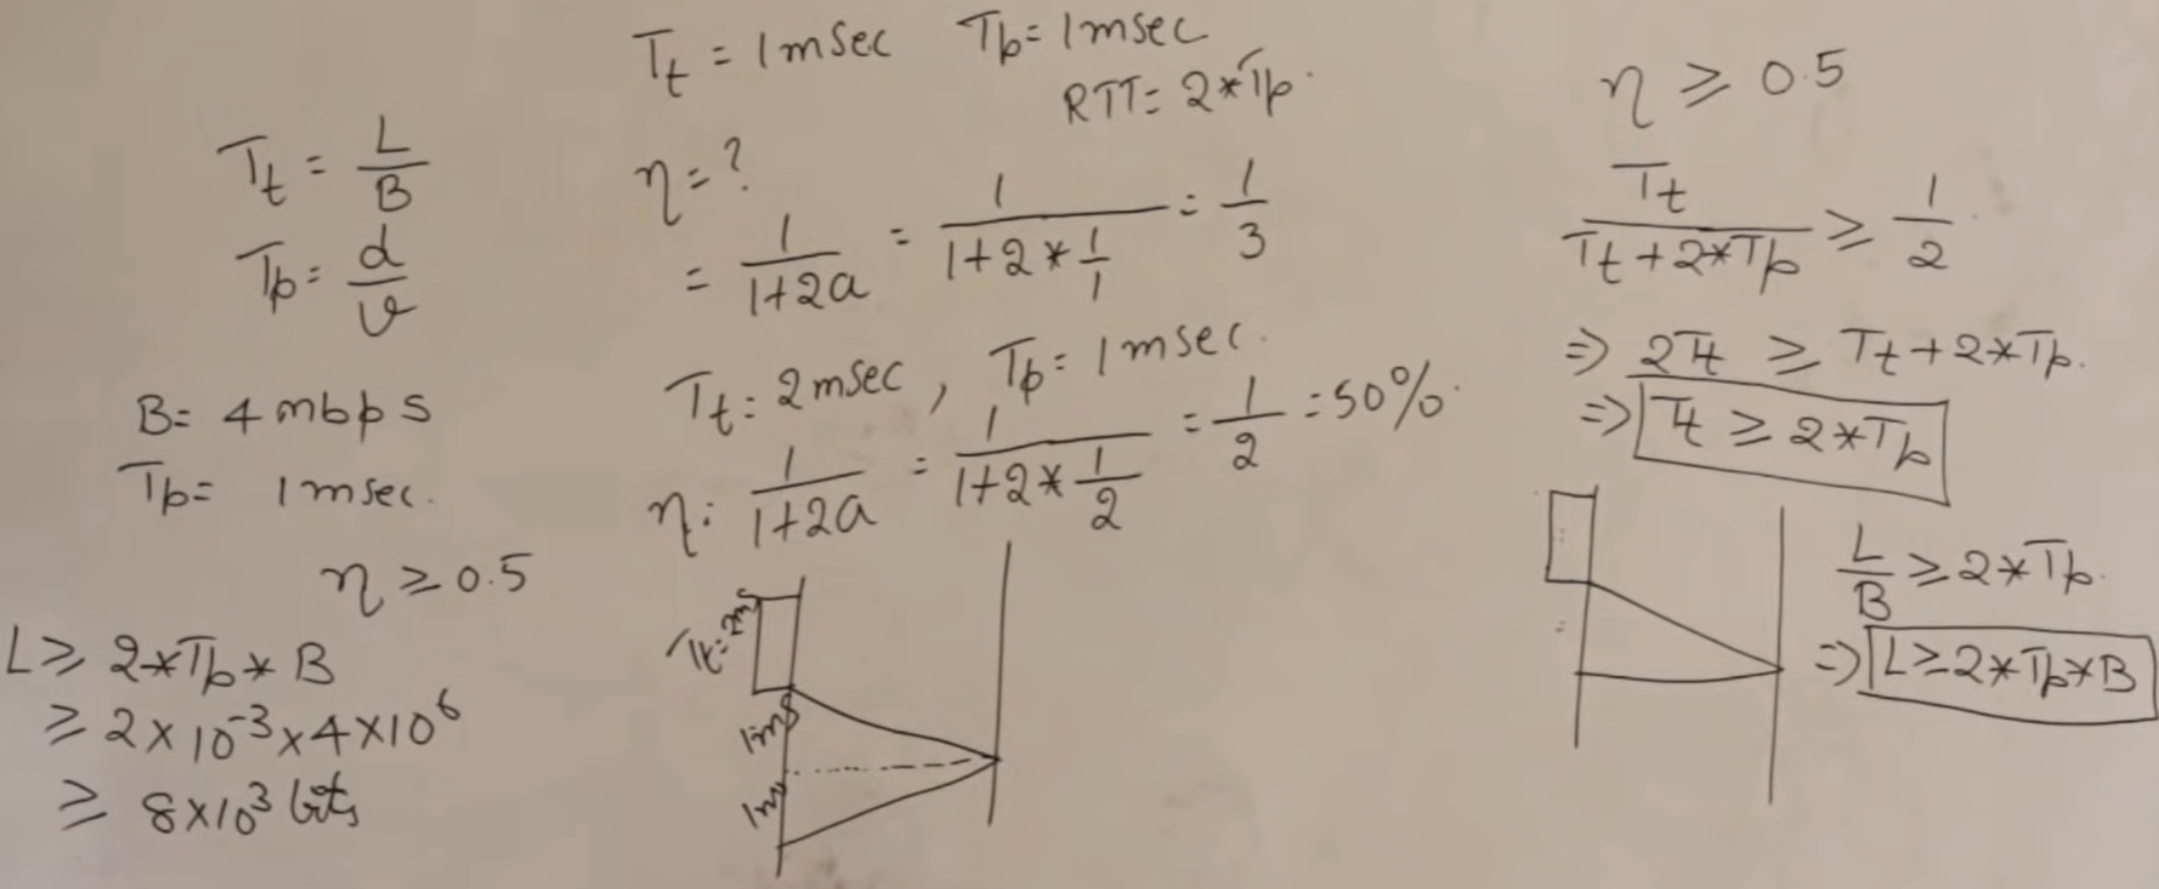 Tt = L/B
Tp = d/v
B = 4 mbps
Tp = 1 msec.
η ≥ 0.5
L ≥ 2*Tp*B
≥ 2×10⁻³×4×10⁶
≥ 8×10³ bits
Tt = 1 msec Tp = 1 msec
RTT = 2*Tp.
η = ?
= 1/(1+2a) = 1/(1+2*1/1) = 1/3
Tt = 2 msec, Tp = 1 msec.
η = 1/(1+2a) = 1/(1+2*1/2) = 1/2 = 50%.
Tt=2ms
1ms
1ms
η ≥ 0.5
Tt/(Tt+2*Tp) ≥ 1/2
⇒ 2Tt ≥ Tt+2*Tp.
⇒ Tt ≥ 2*Tp
L/B ≥ 2*Tp.
⇒ L≥2*Tp*B